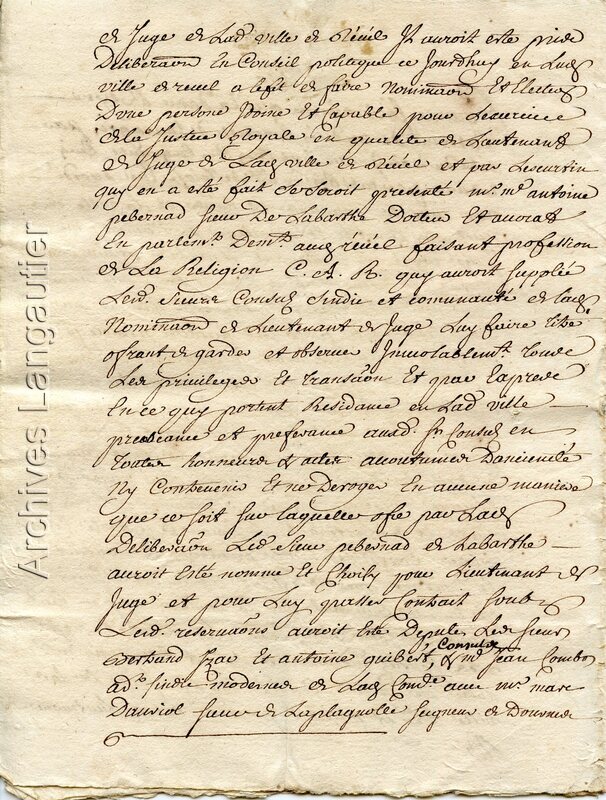 de Juge de Lad. ville de Réuel Il auroit esté prins
Deliberaon En Conseil politique ce Jourdhuy en Lad.
ville de reuel a leffet de faire Nominaon Et Election
Dune persone Idoine Et Capable pour Lexercice
de la Justice Royale en qualité de Lieutenant
de Juge de Lad. ville de Réuel et par
quy en a esté fait Se Seroit presenté mr. me antoine
pebernad sieur De Labarthe Docteur Et auocat
En parlemt. Demt. aud. réuel faisant profession
de La Religion C. A. R. quy auroit supplié
Lesd. sieurs Consuls sindic et communauté de lad.
Nominaon de Lieutenant de Juge Luy faire
ofrant de garder et obserue Inuiolablemt. tous
Les priuileges Et transaon Et
En ce quy portent Residance en Lad. ville
preseance et preferance ausd. srs Consuls en
toutes honneurs & actes accoutumés Dancieneté
Ny Contreuenir Et ne Deroger En aucune maniere
que ce soit sur laquelle ofre par Lad.
Deliberaon Led. sieur pebernad de Labarthe
auroit Esté nommé Et Choisy pour Lieutenant de
Juge et pour Luy passer Contrait soubs
Lesd. reseruaons auroit Esté Deputés Les sieurs
Bertrand Et antoine guibert, Consuls & me Jean Combos
adt. sindic moderne de Lad. Comté. auec mr. marc
Dauriol sieur de Laplagnolle seigneur de
Archives Langautier